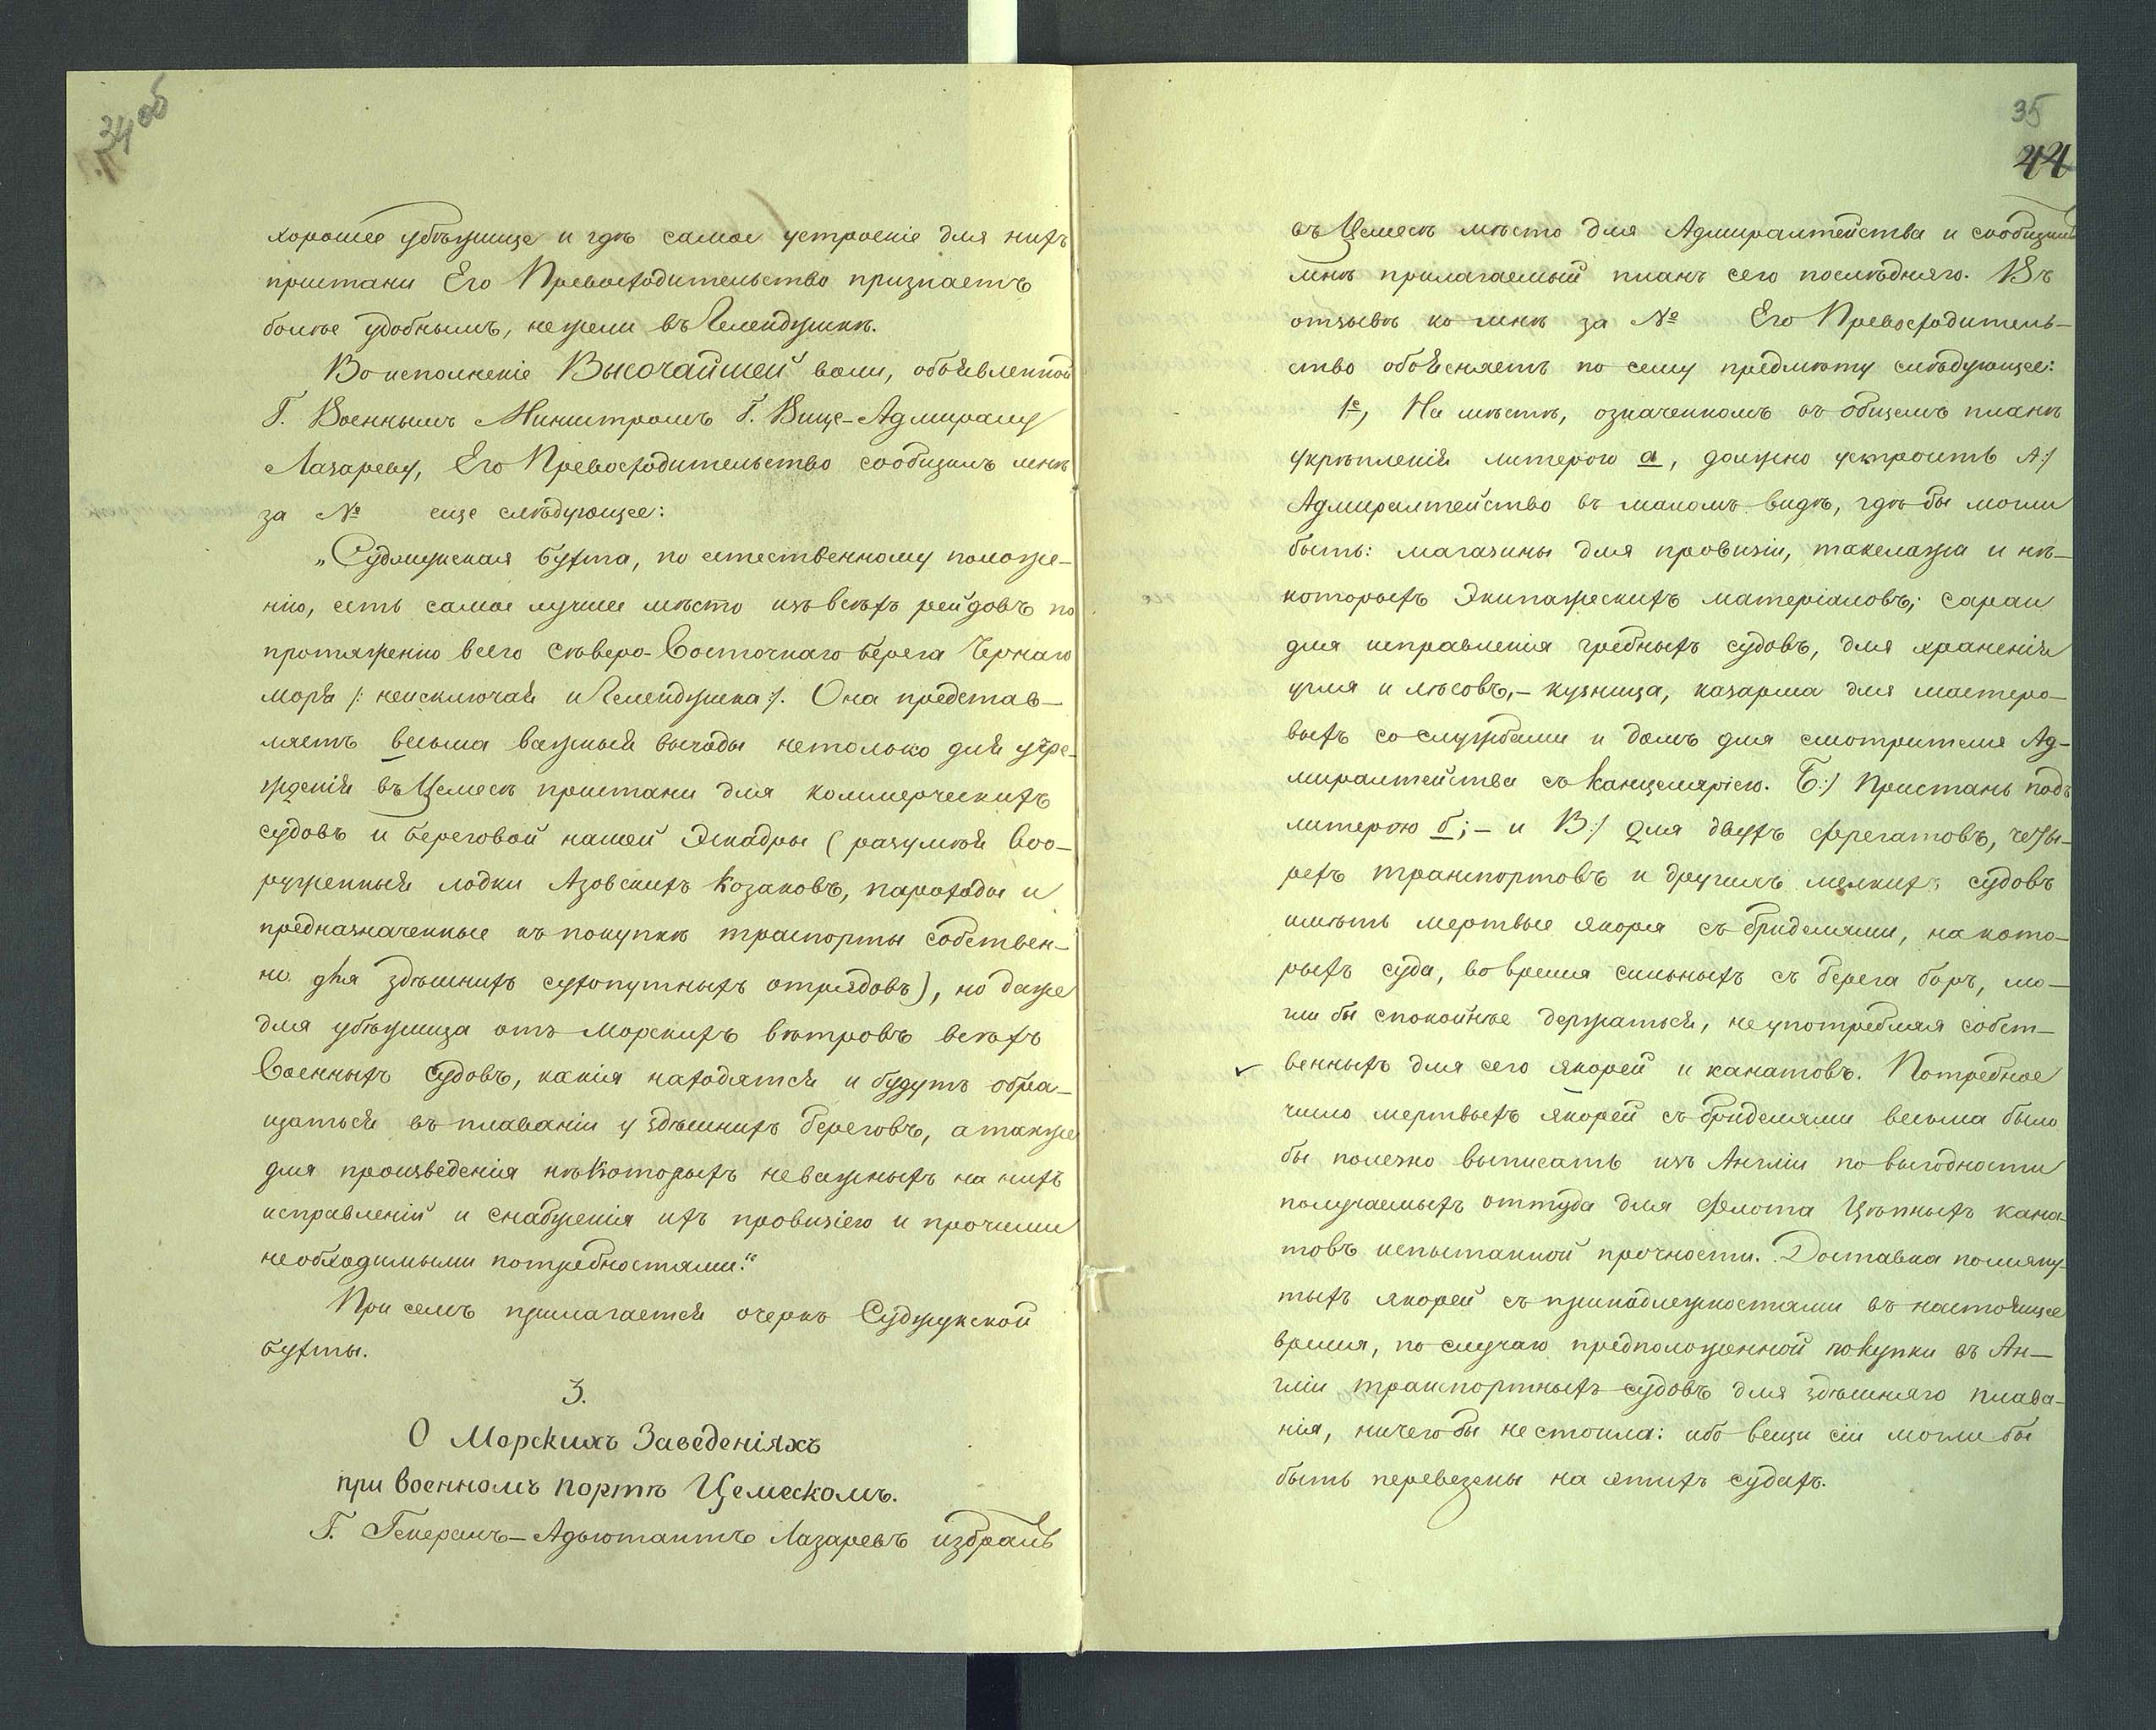 34 об
хорошее убѣжище и гдѣ самое устроеніе для нихъ
пристани Его Превосходительство признаетъ
болѣе удобнымъ, нежели въ Геленджикѣ.
Во исполненіе Высочайшей воли, объявленной
Г. Военнымъ Министромъ Г. Вице-Адмиралу
Лазареву, Его Превосходительство сообщилъ мнѣ
за № еще слѣдующее:
„Суджукская бухта, по естественному положе-
нію, есть самое лучшее мѣсто изъ всѣхъ рейдовъ по
протяженію всего Сѣверо-Восточнаго берега Чернаго
моря /: неисключая и Геленджика :/. Она представ-
ляетъ весьма важныя выгоды нетолько для учре-
жденія въ Цемесѣ пристани для коммерческихъ
судовъ и береговой нашей Эскадры (разумѣя воо-
руженныя лодки Азовскихъ Козаковъ, пароходы и
предназначенные къ покупкѣ траспорты собствен-
но для здѣшнихъ сухопутныхъ отрядовъ), но даже
для убѣжища отъ морскихъ вѣтровъ всѣхъ
Военныхъ Судовъ, какія находятся и будутъ обра-
щаться въ плаваніи у здѣшнихъ береговъ, а также
для произведенія нѣкоторыхъ неважныхъ на нихъ
исправленій и снабженія ихъ провизіею и прочими
необходимыми потребностями."
При семъ прилагается очеркъ Суджукской
бухты.
3.
О Морскихъ Заведеніяхъ
при военномъ портѣ Цемескомъ.
Г. Генералъ-Адъютантъ Лазаревъ избралъ
35
44
въ Цемесѣ мѣсто для Адмиралтейства и сообщилъ
мнѣ прилагаемый планъ сего послѣдняго. Въ
отзывѣ ко мнѣ за № Его Превосходитель-
ство объясняетъ по сему предмету слѣдующее:
1е, На мѣстѣ, означенномъ въ общемъ планѣ
укрѣпленія литерою а, должно устроить А:/
Адмиралтейство въ маломъ видѣ, гдѣ бы могли
быть: магазины для провизіи, такелажа и нѣ-
которыхъ Экипажескихъ матеріаловъ; сараи
для исправленія гребныхъ судовъ, для храненія
угля и лѣсовъ,- кузница, казарма для мастеро-
выхъ со службами и домъ для смотрителя Ад-
миралтейства съ канцеляріею. Б:/ Пристань подъ
литерою б;- и В:/ Для двухъ фрегатовъ, четы-
рехъ транспортовъ и другихъ мелкихъ судовъ
имѣть мертвые якоря съ бриделями, на кото-
рыхъ суда, во время сильныхъ съ берега боръ, мо-
гли бы спокойнѣе держаться, неупотребляя собст-
венныхъ для сего якорей и канатовъ. Потребное
число мертвыхъ якорей съ бриделями весьма было
бы полезно выписать изъ Англіи по выгодности
получаемыхъ оттуда для флота Цѣпныхъ кана-
товъ испытанной прочности. Доставка помяну-
тыхъ якорей съ принадлежностями въ настоящее
время, по случаю предположенной покупки въ Ан-
гліи транспортныхъ судовъ для здѣшняго плава-
нія, ничего бы не стоила: ибо вещи сіи могли бы
быть перевезены на этихъ судахъ.